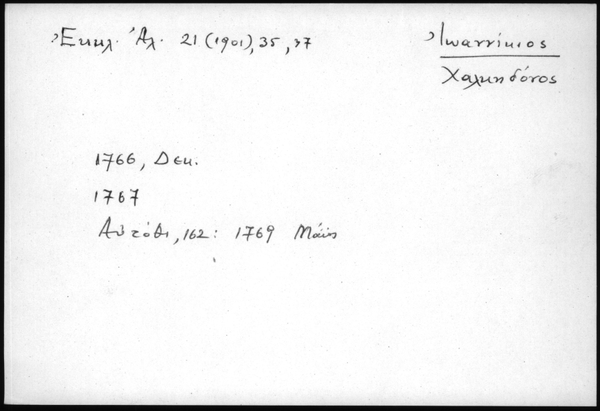 Ἐκκλ. Ἀλ. 21 (1901), 35, 37
Ἰωαννίκιος
Χαλκηδόνος
1766, Δεκ.
1767
Αὐτόθι, 162: 1769 Μάϊος